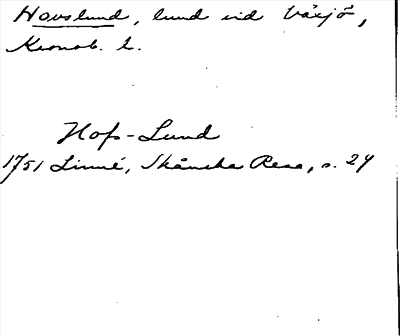 Hovslund, lund vid Växjö,
Kronob. l.
Hofs-Lund
1751 Linné, Skånska Resa, s. 24